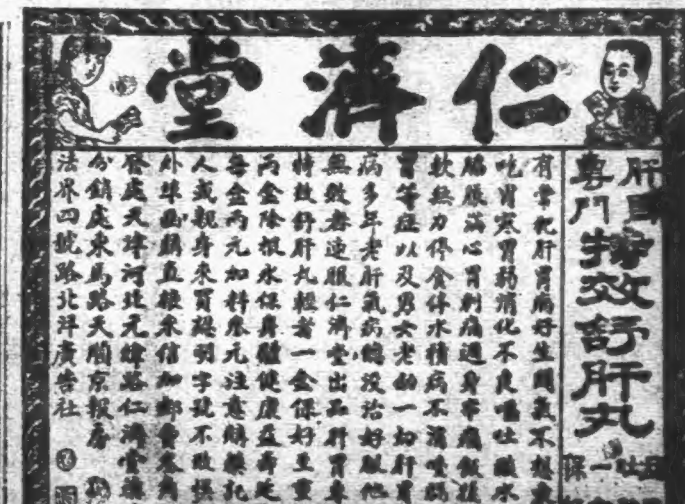 仁濟堂
肝胃
專門
特效舒肝丸
有常犯肝胃病好生悶氣不想
吃胃寒胃弱消化不良嘔吐酸水
腦脹滿心胃刺痛週身
軟無力停食停水積病不消
胃等症以及男女老幼一切肝胃
病多年老肝氣病總沒治好服他
無效者速服仁濟堂出品肝胃專
特效舒肝丸輕者一盒保好至重
兩盒除根永保身體健康益壽延
每盒兩元加料叁元注意
人或親身來買認明字號不致
外埠函購直接來信加郵費叁角
發處天津河北元緯路仁濟堂
分銷處東馬路天順京報房
法界四號路北洋廣告社